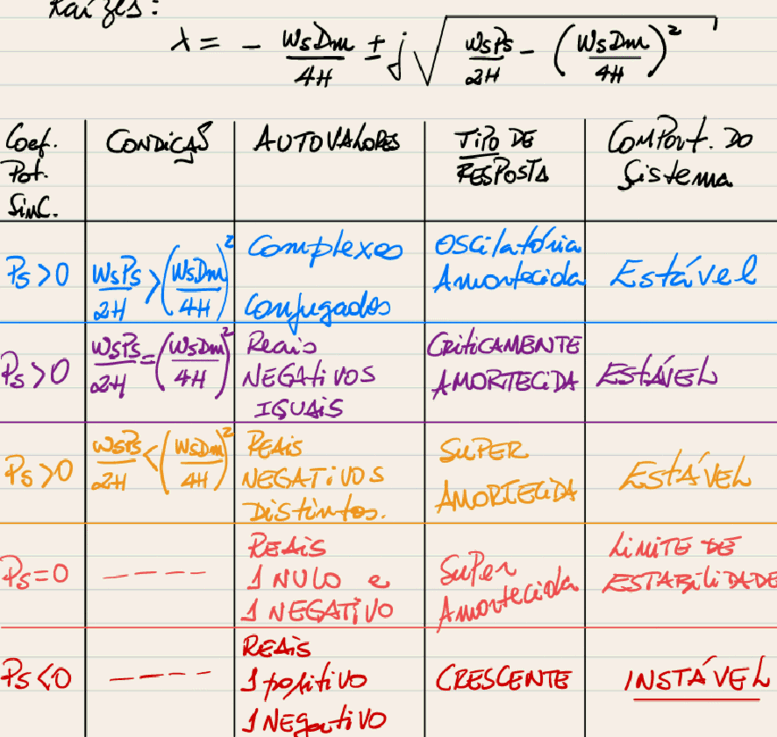 Raízes:
λ = - WsDm/4H ± j √ WsPs/2H - (WsDm/4H)²
Coef. Pot. Sinc. | CONDIÇÃO | AUTOVALORES | TIPO DE RESPOSTA | Comport. do Sistema
Ps>0 | WsPs/2H > (WsDm/4H)² | Complexos Conjugados | Oscilatória Amortecida | Estável
Ps>0 | WsPs/2H = (WsDm/4H)² | Reais NEGATIVOS IGUAIS | CRITICAMENTE AMORTECIDA | ESTÁVEL
Ps>0 | WsPs/2H < (WsDm/4H)² | REAIS NEGATIVOS Distintos. | SUPER AMORTECIDA | ESTÁVEL
Ps=0 | ---- | REAIS 1 NULO e 1 NEGATIVO | Super Amortecida | LIMITE DE ESTABILIDADE
Ps<0 | ---- | REAIS 1 positivo 1 Negativo | CRESCENTE | INSTÁVEL